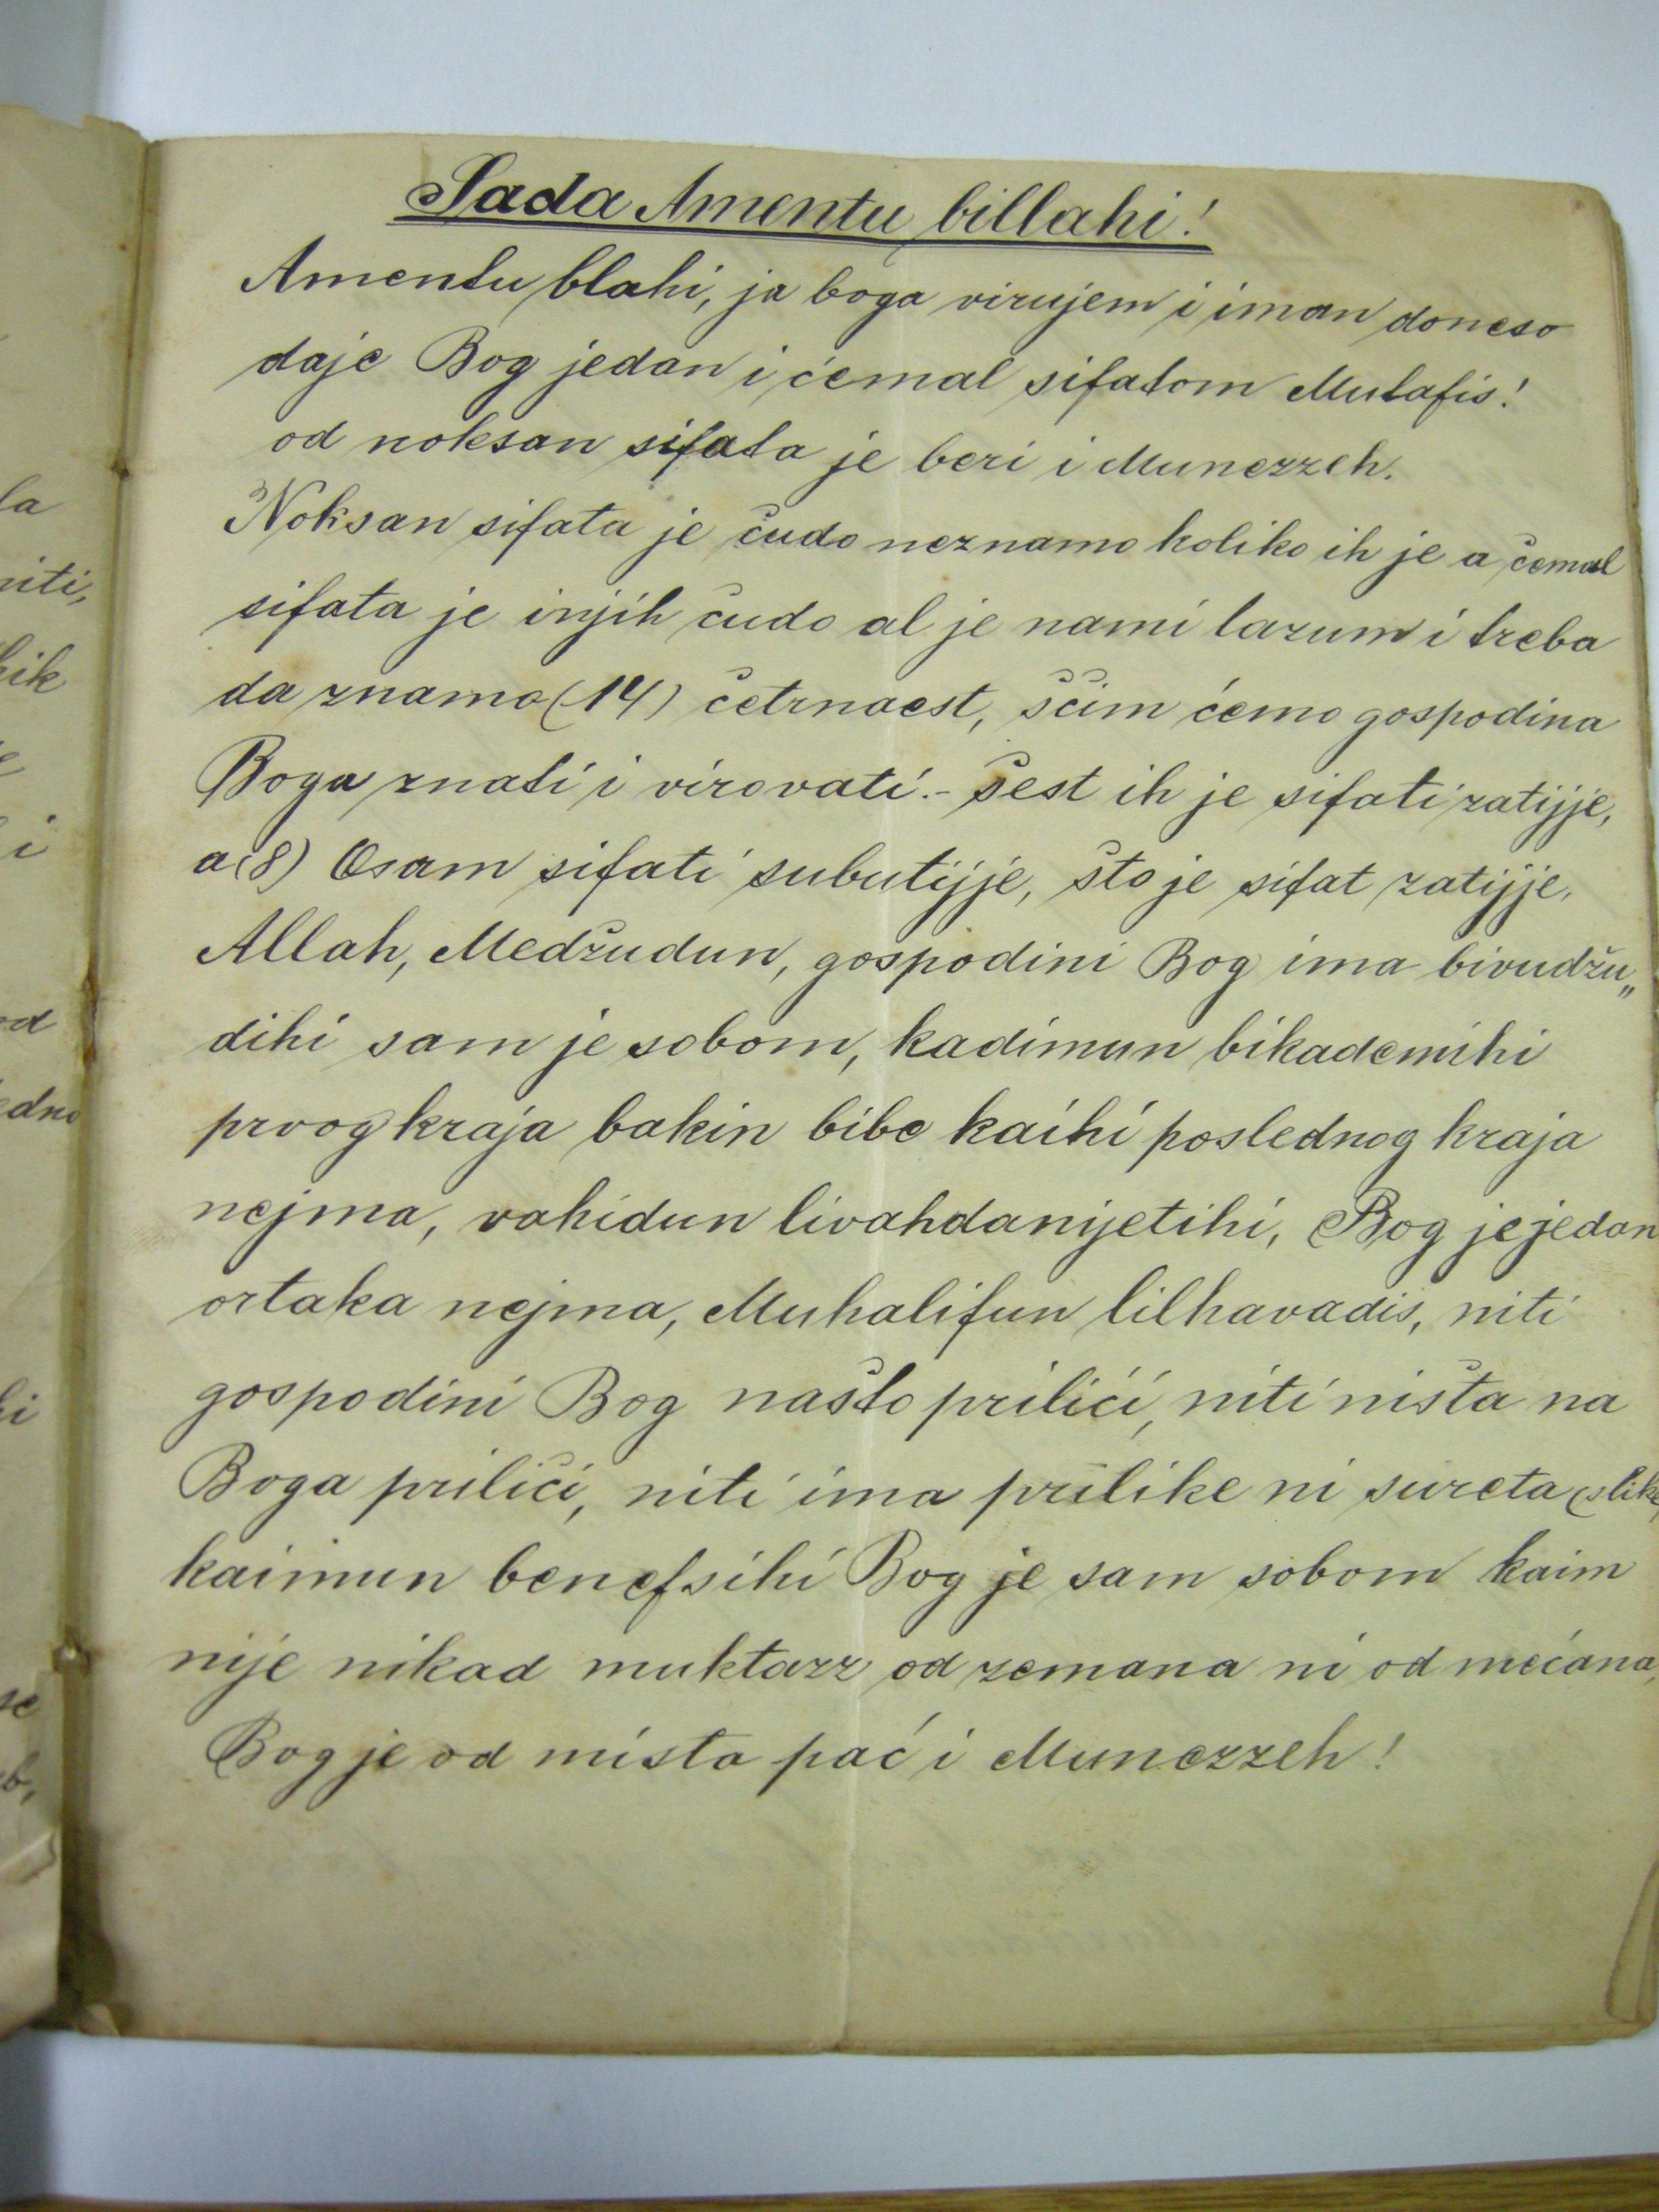 Sada Amentu billahi!
Amentu blahi, ja boga virujem i iman doneso
daje Bog jedan i ćemal sifatom Mutafis!
od noksan sifata je beri i Munezzeh.
Noksan sifata je čudo neznamo koliko ih je a ćemal
sifata je injih čudo al je nami lazum i treba
da znamo (14) četrnaest, ščim ćemo gospodina
Boga znati i virovati.- šest ih je sifati zatijje,
a (8) Osam sifati subutijje, što je sifat zatijje,
Allah, Medžudun, gospodini Bog ima bivudžu„
dihi sam je sobom, kadimun bikademihi
prvog kraja bakin bibe kaihi poslednog kraja
nejma, vahidun livahdanijetihi, Bog je jedan
ortaka nejma, Muhalifun lilhavadis, niti
gospodini Bog našto priliči, niti ništa na
Boga priliči, niti ima prilike ni sureta (slike)
kaimun benefsihi Bog je sam sobom kaim
nije nikad muktazz od zemana ni od mećana,
Bog je od mista pać i Munezzeh!
la
niti,
hik
i
od
edno
hi
se
b,